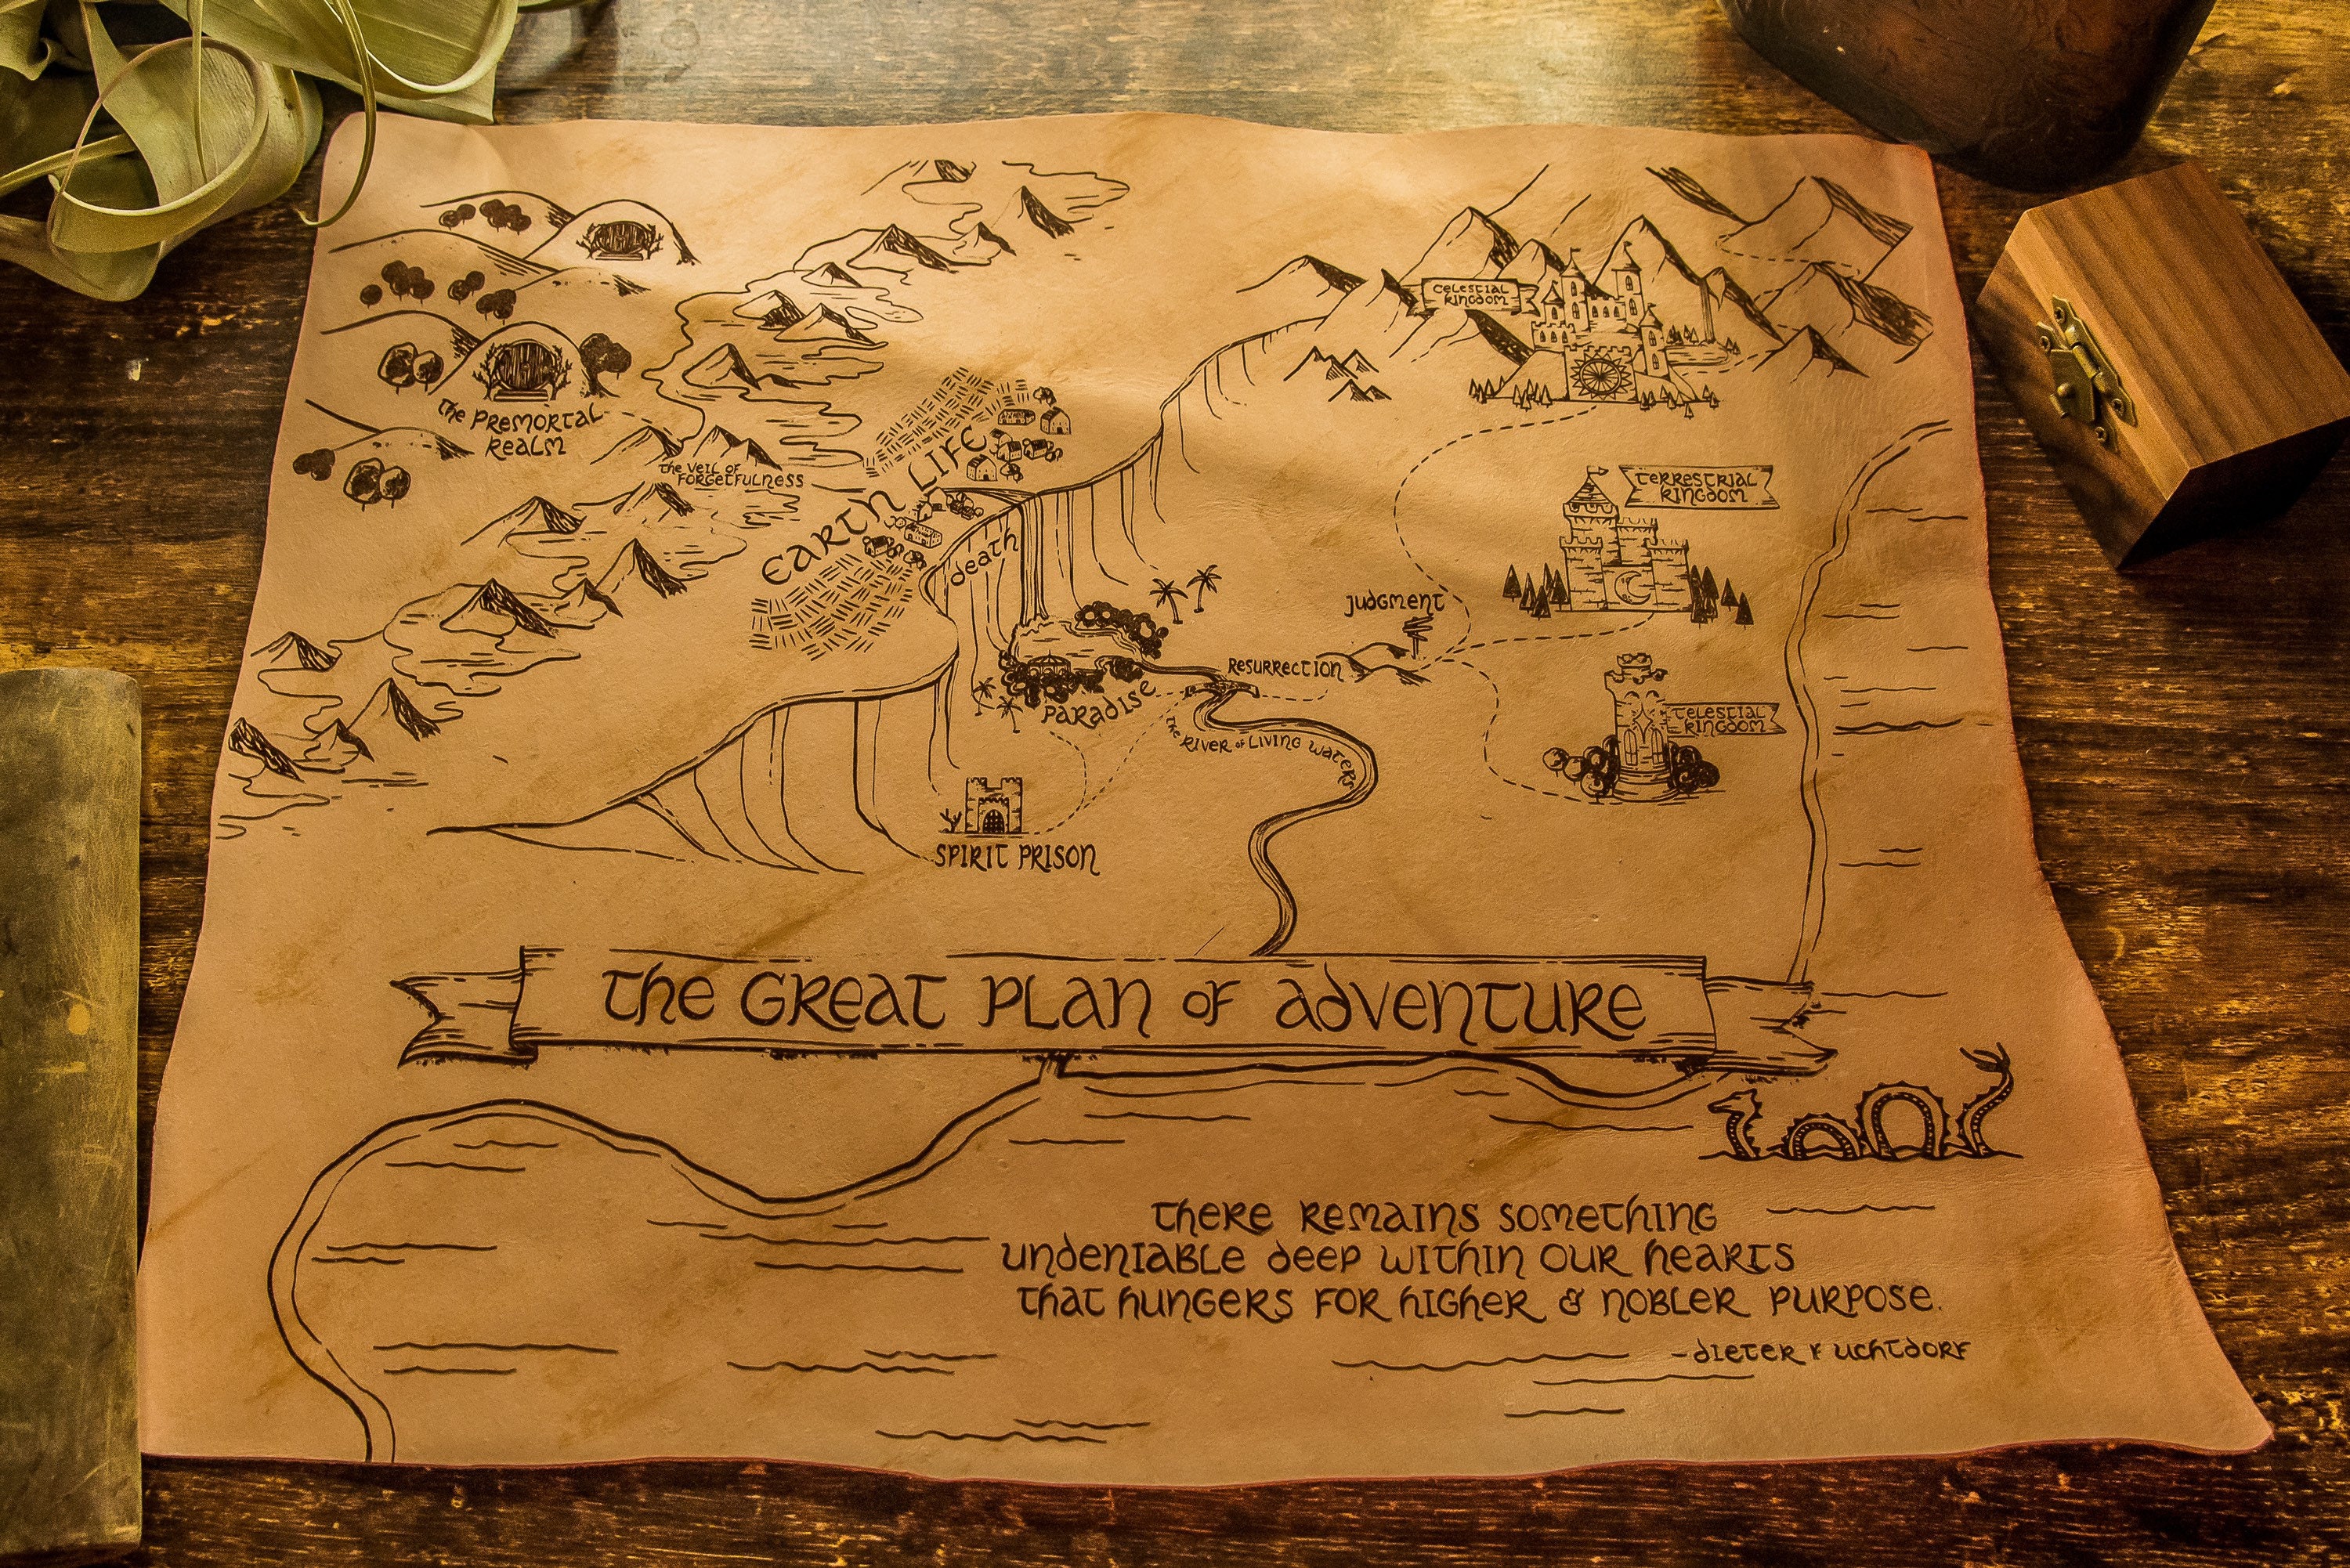 The Premortal
Realm
The Veil of
Forgetfulness
Earth Life
Death
Paradise
Spirit Prison
The River of Living Waters
Resurrection
Judgment
Celestial
Kingdom
Terrestrial
Kingdom
Telestial
Kingdom
The Great Plan of Adventure
There remains something
undeniable deep within our hearts
that hungers for higher & nobler purpose.
-Dieter F Uchtdorf